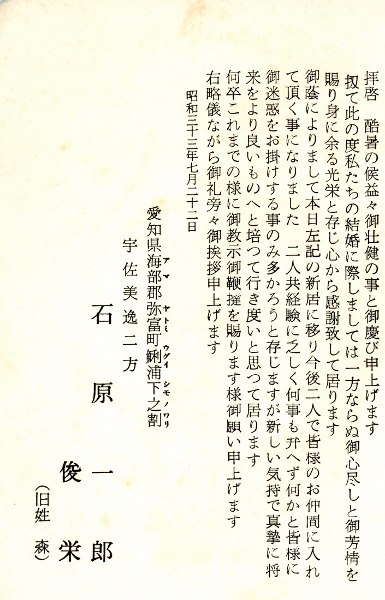 拝啓　酷暑の候益々御壮健の事と御慶び申上げます
扨て此の度私たちの結婚に際しましては一方ならぬ御心尽しと御芳情を
賜り身に余る光栄と存じ心から感謝致して居ります
御蔭によりまして本日左記の新居に移り今後二人で皆様のお仲間に入れ
て頂く事になりました　二人共経験に乏しく何事も弁へず何かと皆様に
御迷惑をお掛けする事のみ多かろうと存じますが新しい気持で真摯に将
来をより良いものへと培つて行き度いと思つて居ります
何卒これまでの様に御教示御鞭撻を賜ります様御願い申上げます
右略儀ながら御礼旁々御挨拶申上げます
昭和三十三年七月二十二日
愛知県海部郡弥富町鯏浦下之割
アマ　ヤトミ　ウグイ　シモノワリ
宇佐美逸二方
石原一郎
俊栄
（旧姓 森）